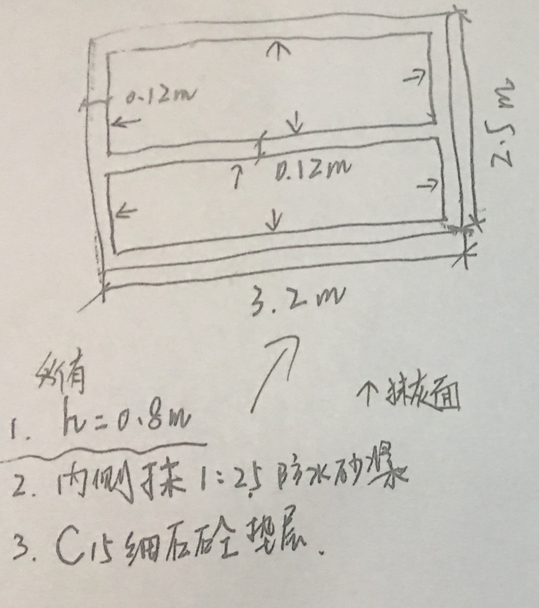 0.12m
0.12m
2.5m
3.2m
所有
1. h=0.8m
↑抹灰面
2. 内侧抹1:2.5防水砂浆
3. C15细石砼垫层.